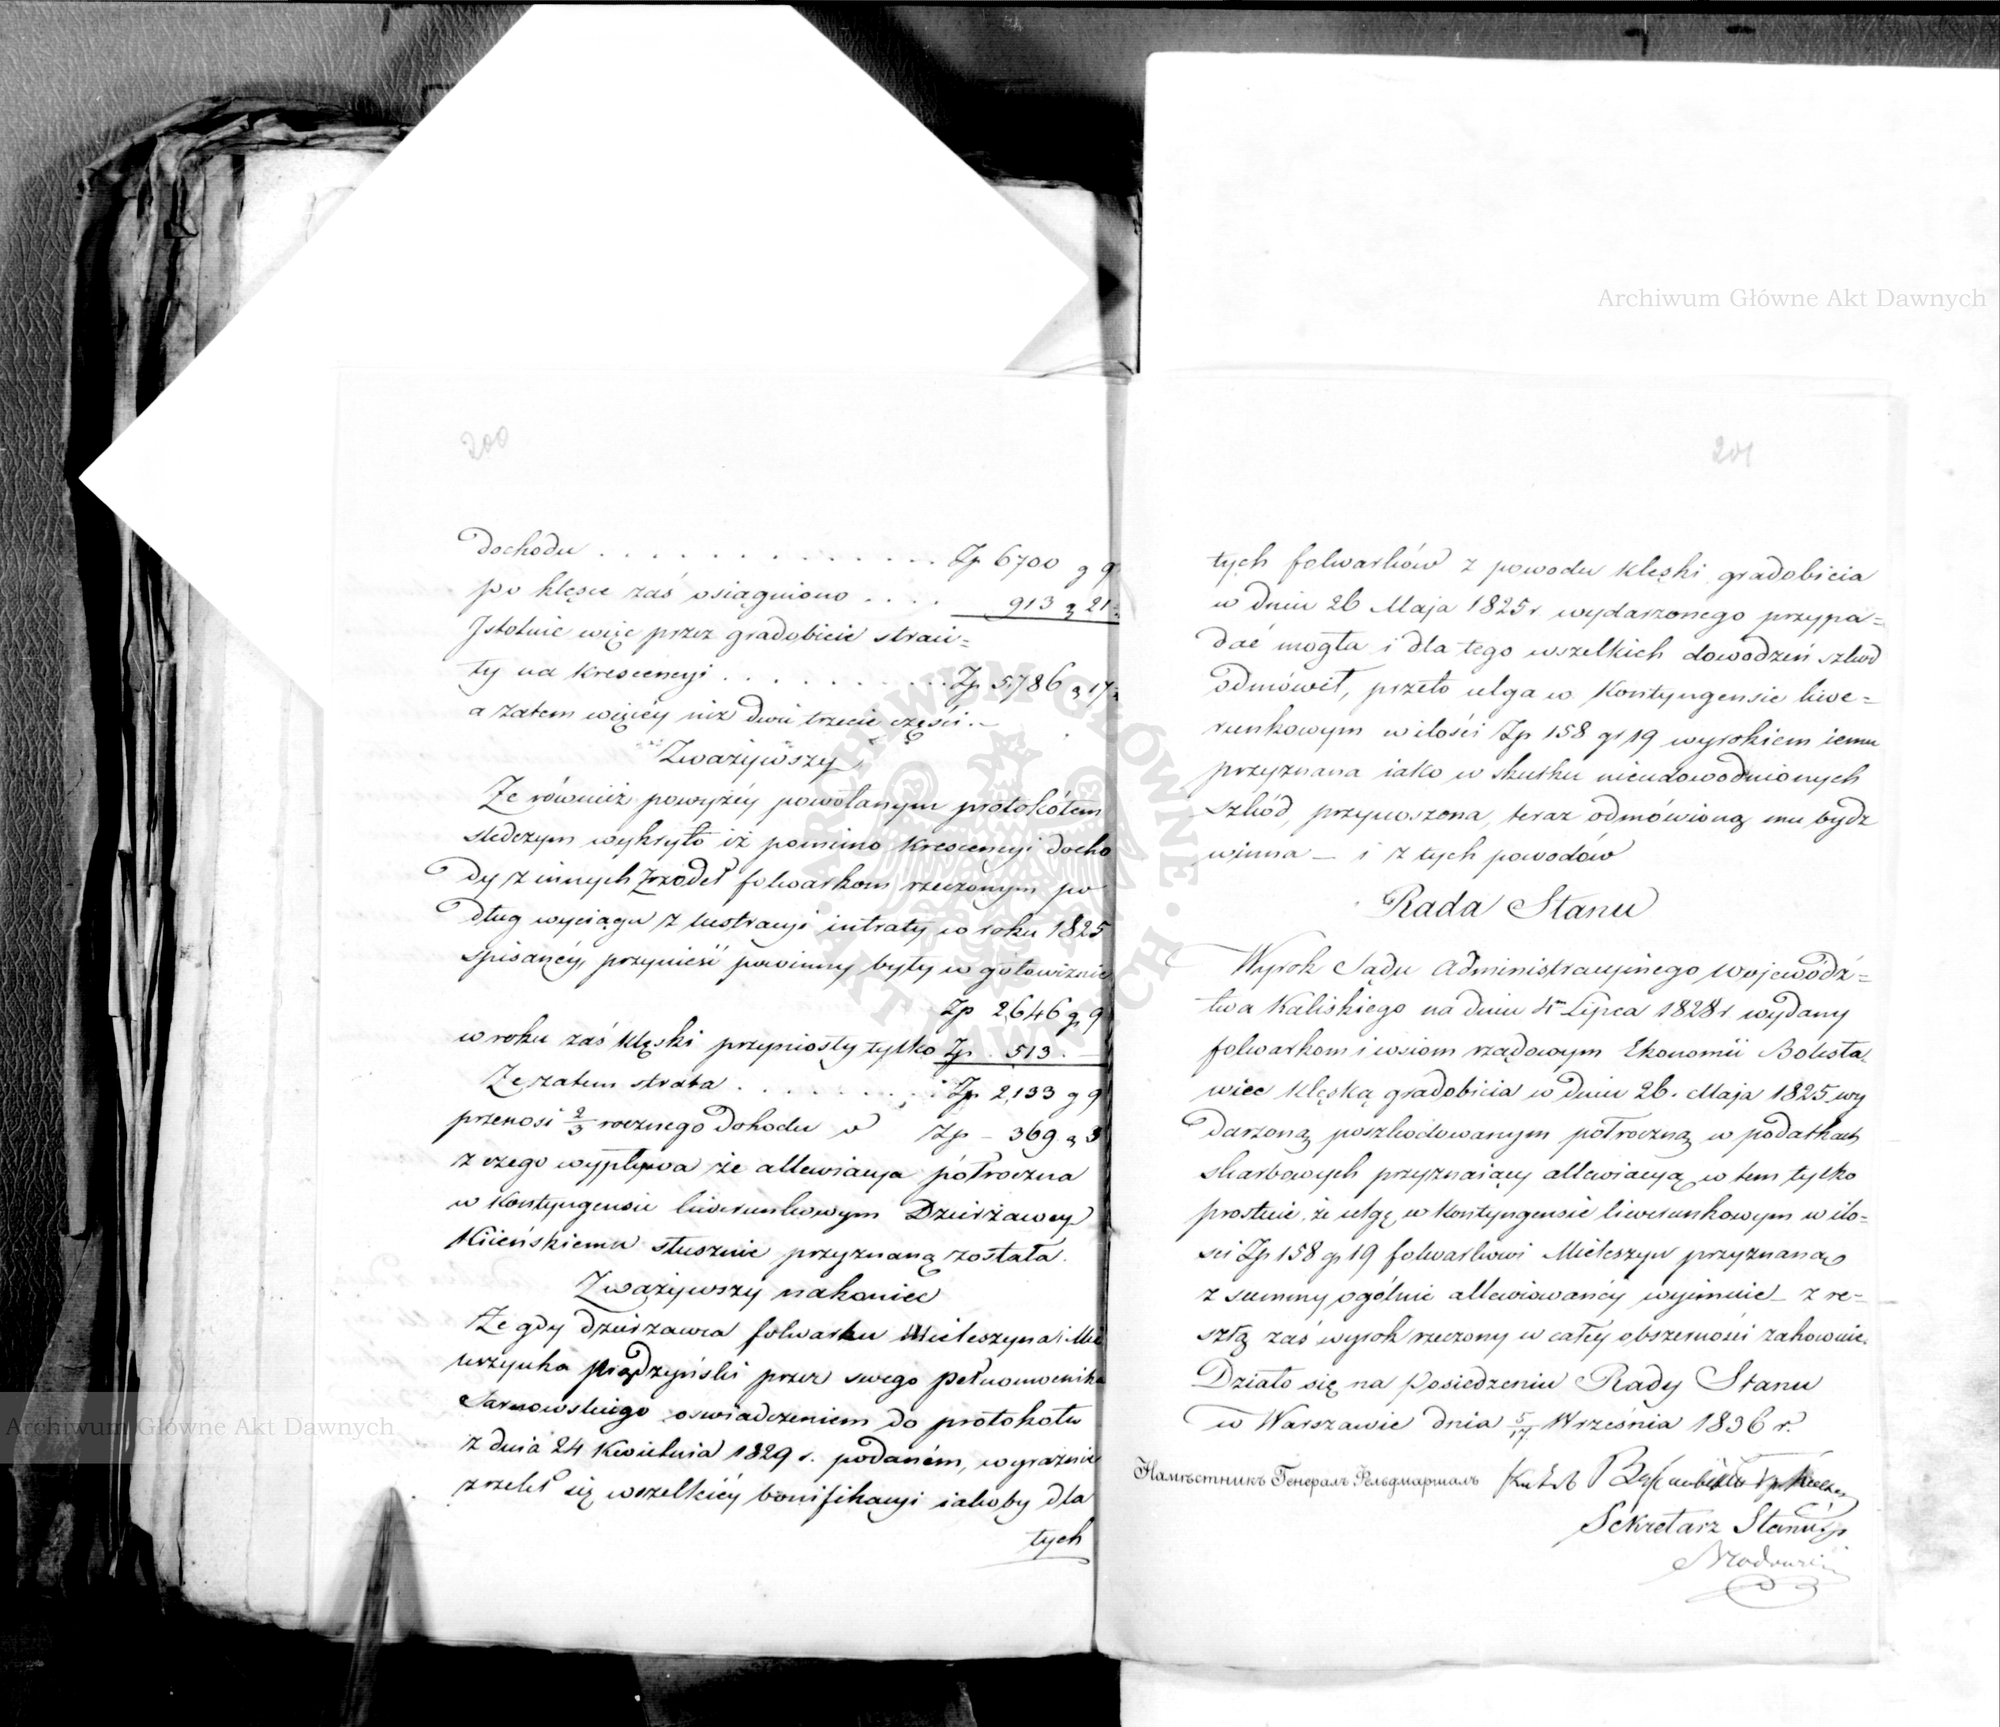 200
dochodu . . . . . . . . . . . . . . Zp 6700 g 9
po klęsce zaś osiągniono . . . . 913 g 21
Istotnie więc przez gradobicie straci=
ty na krescencyi . . . . . . . . . Zp 5,786 g 17
a zatem więcéy niż dwie trzecie części.—
Zważywszy
Że również powyżéy powołanym protokółem
śledczym wykryło iż pomimo krescencyi docho
dy z innych zrzodeł folwarkom rzeczonym po
dług wyciągu z lustracyi intraty w roku 1825
spisanéy, przynieść powinny były w gotowiznie
Zp 2,646 g 9
w roku zaś klęski przyniosły tylko Zp . 513 . —
Że zatem strata . . . . . . . . . Zp 2,133 g 9
przenosi 2/3 rocznego Dohodu o Zp — 369 g 3
z czego wypływa że allewiacya półroczna
w kontyngensie liwerunkowym Dzierżawcy
Kiieńskiemu słusznie przyznaną została.
Zważywszy nakoniec
Że gdy dzierzawca folwarku Mieleszyna i Mie
przez swego pełnomocnika
Sarnowskiego oswiadczeniem do protokołu
z dnia 24 Kwietnia 1829 r. podaném, wyraznie
zrzekł się wszelkiéy bonifikacyi iakoby dla
tych
201
tych folwarków z powodu klęski gradobicia
w dniu 26 Maja 1825 r wydarzonego przypa=
dać mogła i dla tego wszelkich dowodzeń szkod
odmówił, przeto ulga w Kontyngensie liwe=
runkowym w ilości Zp 158 gr 19 wyrokiem iemu
przyznana iako w skutku nieudowodnionych
szkód, przynoszona, teraz odmówioną mu bydz
winna — i z tych powodów
Rada Stanu
Wyrok Sądu Administracyinego Wojewódz=
twa Kaliskiego na dniu Lipca 1828 r wydany
folwarkom i wsiom rządowym Ekonomii Bolesła
wiec klęską gradobicia w dniu 26. Maja 1825 wy
darzoną poszkodowanym półroczną w podatkach
skarbowych przyznaiący allewiacyą w tem tylko
prostuie, że ulgę w Kontyngensie liwerunkowym w ilo=
sci Zp 158 gr 19 folwarkowi Mieleszyn przyznaną
z summy ogólnie allewiowanéy wyimuie — z re=
sztą zaś wyrok rzeczony w całey obszerności zahowuie.
Działo się na Posiedzeniu Rady Stanu
w Warszawie dnia 5/17 Września 1836 r.
Намѣстникъ Генералъ Фельдмаршалъ
Sekretarz Stanu
Archiwum Główne Akt Dawnych
Archiwum Główne Akt Dawnych
ARCHIWUM GŁÓWNE AKT DAWNYCH